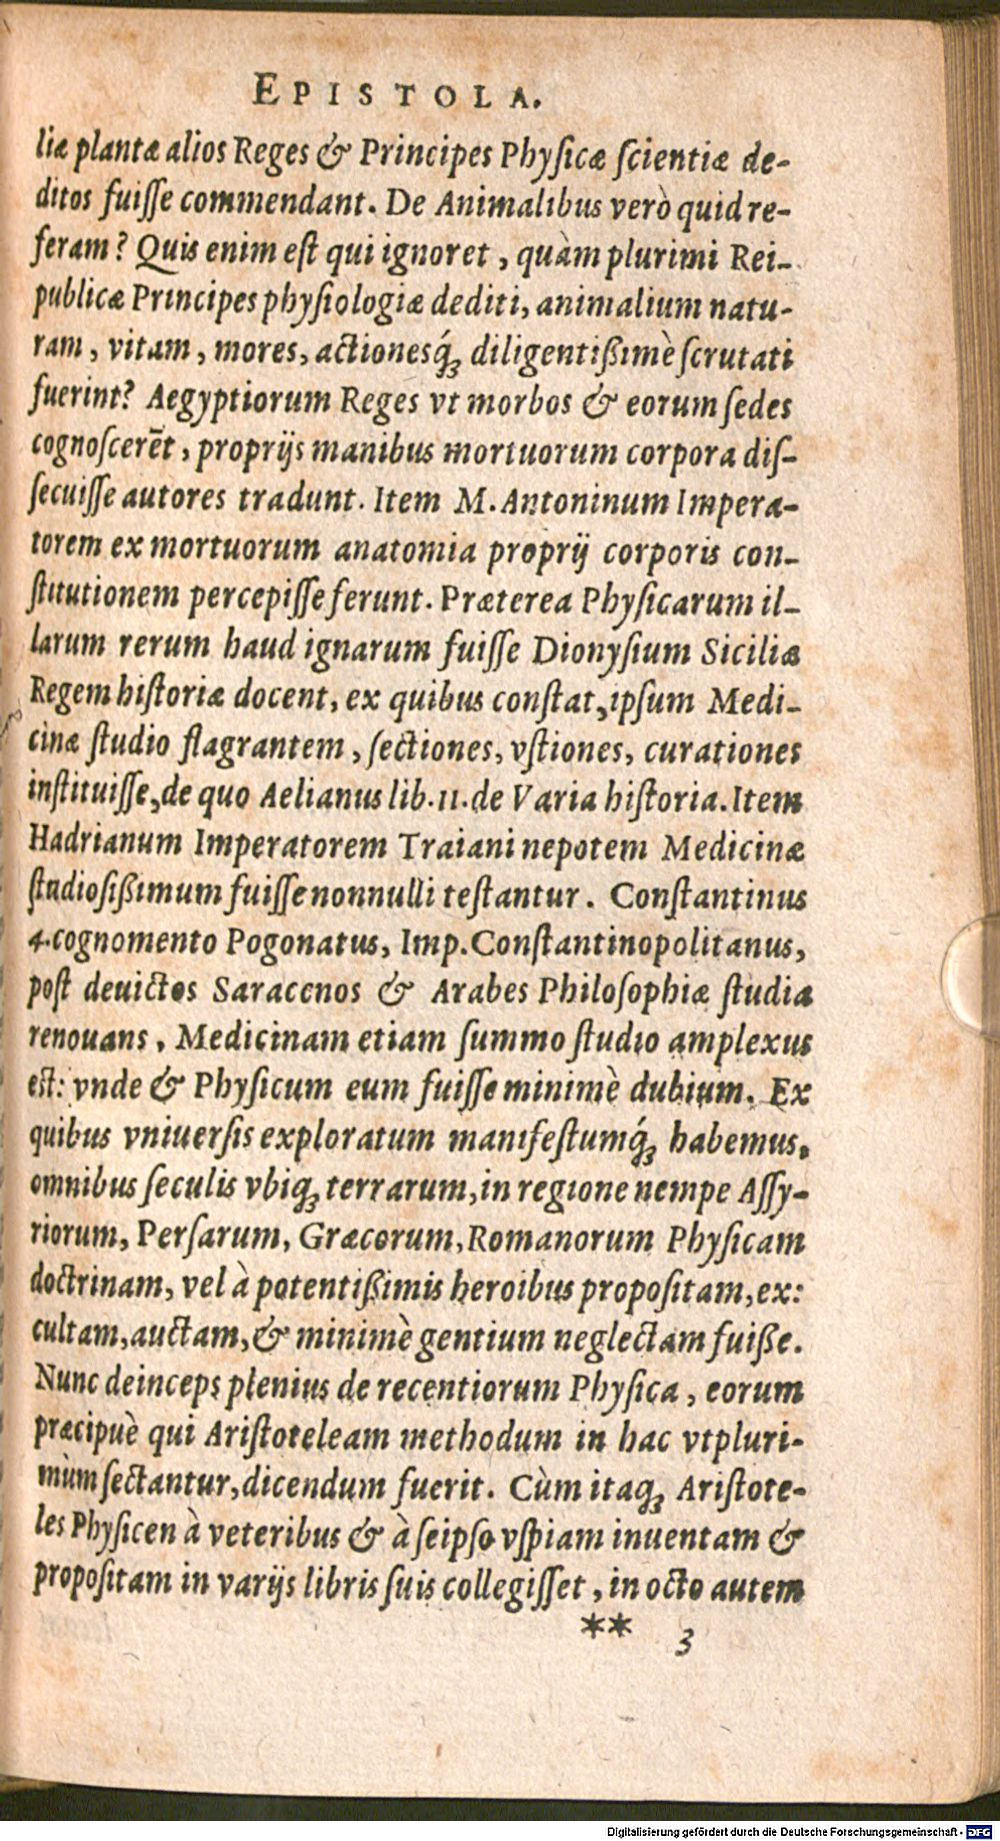 EPISTOLA.
liæ plantæ alios Reges & Principes Physicæ scientiæ de-
ditos fuiſſe commendant. De Animalibus verò quid re-
feram? Quis enim eſt qui ignoret, quàm plurimi Rei-
publicæ Principes phyſiologiæ dediti, animalium natu-
ram, vitam, mores, actionesq́ꝫ diligentißimè ſcrutati
fuerint? Aegyptiorum Reges vt morbos & eorum ſedes
cognoſcerēt, proprijs manibus mortuorum corpora diſ-
ſecuiſſe autores tradunt. Item M. Antoninum Impera-
torem ex mortuorum anatomia proprij corporis con-
ſtitutionem percepiſſe ferunt. Præterea Phyſicarum il-
larum rerum haud ignarum fuiſſe Dionyſium Siciliæ
Regem hiſtoriæ docent, ex quibus conſtat, ipſum Medi-
cinæ ſtudio flagrantem, ſectiones, vſtiones, curationes
inſtituiſſe, de quo Aelianus lib. 11. de Varia hiſtoria. Item
Hadrianum Imperatorem Traiani nepotem Medicinæ
ſtudioſißimum fuiſſe nonnulli teſtantur. Conſtantinus
4. cognomento Pogonatus, Imp. Conſtantinopolitanus,
poſt deuictos Saracenos & Arabes Philoſophiæ ſtudia
renouans, Medicinam etiam ſummo ſtudio amplexus
eſt: vnde & Phyſicum eum fuiſſe minimè dubium. Ex
quibus vniuerſis exploratum manifeſtumq́ꝫ habemus,
omnibus ſeculis vbiqꝫ terrarum, in regione nempe Aſſy-
riorum, Perſarum, Græcorum, Romanorum Phyſicam
doctrinam, vel à potentißimis heroibus propoſitam, ex:
cultam, auctam, & minimè gentium neglectam fuiße.
Nunc deinceps plenius de recentiorum Phyſica, eorum
præcipuè qui Ariſtoteleam methodum in hac vtpluri-
mùm ſectantur, dicendum fuerit. Cùm itaqꝫ Ariſtote-
les Phyſicen à veteribus & à ſeipſo vſpiam inuentam &
propoſitam in varijs libris ſuis collegiſſet, in octo autem
** 3
Digitalisierung gefördert durch die Deutsche Forschungsgemeinschaft - DFG